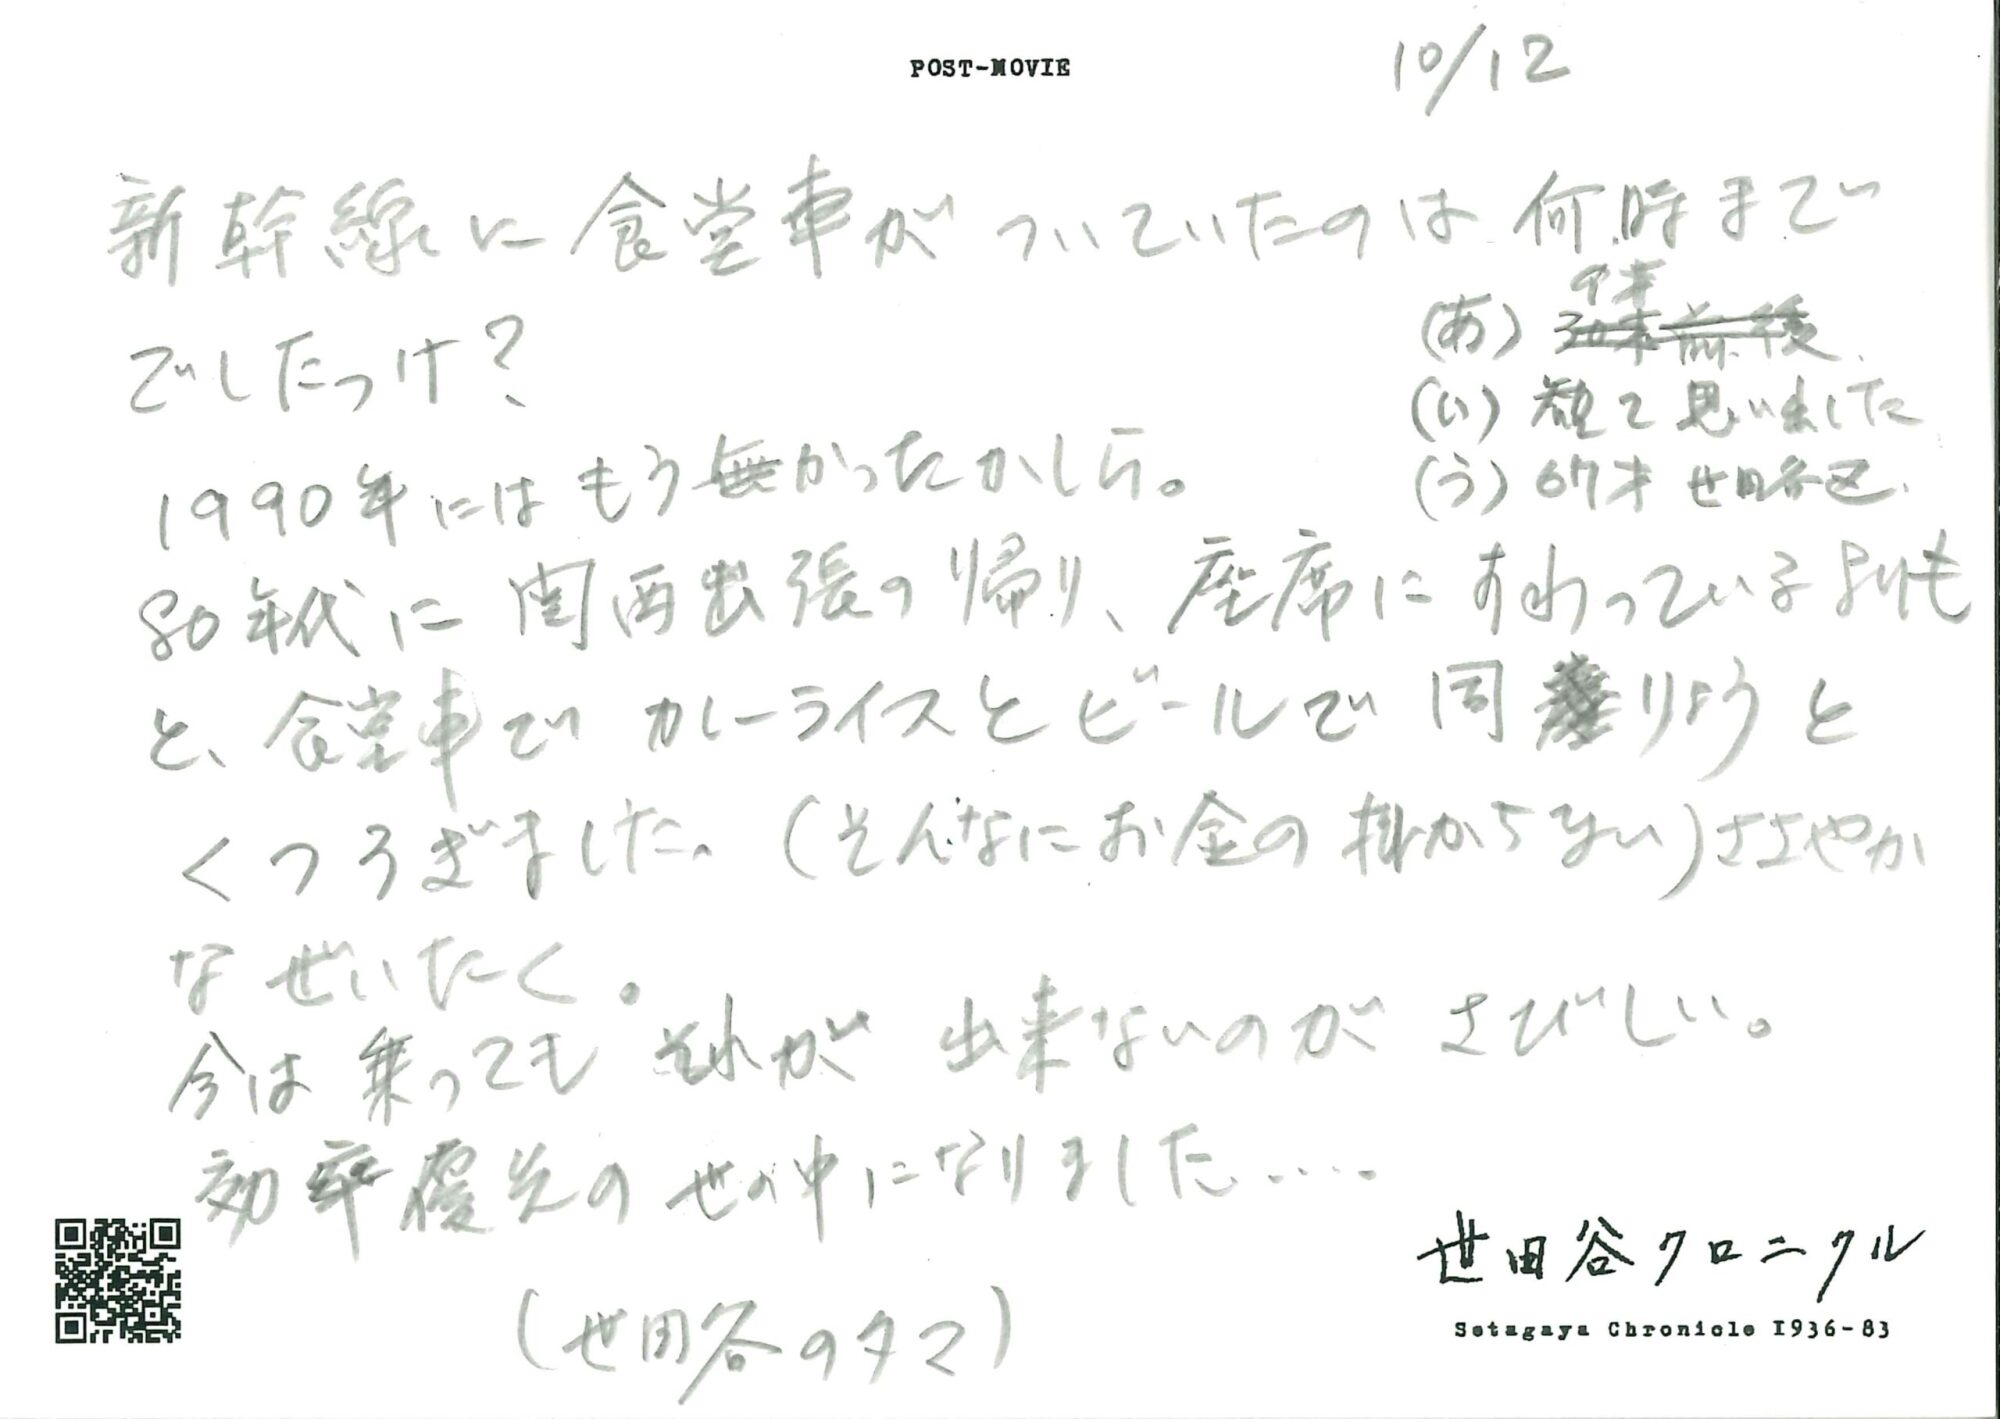 POST-MOVIE
10/12
新幹線に食堂車がついていたのは何時まで
でしたっけ?
(あ)
(い) 観て思い出した
(う) 67才 世田谷区.
1990年にはもう無かったかしら。
80年代に関西出張の帰り、座席にすわっているよりも
と、食堂車でカレーライスとビールで同りょうと
くつろぎました。(そんなにお金の掛からない)ささやか
なぜいたく。
今は乗ってもそれが出来ないのがさびしい。
効率優先の世の中になりました.....
(世田谷のタマ)
世田谷クロニクル
Setagaya Chronicle 1936-83